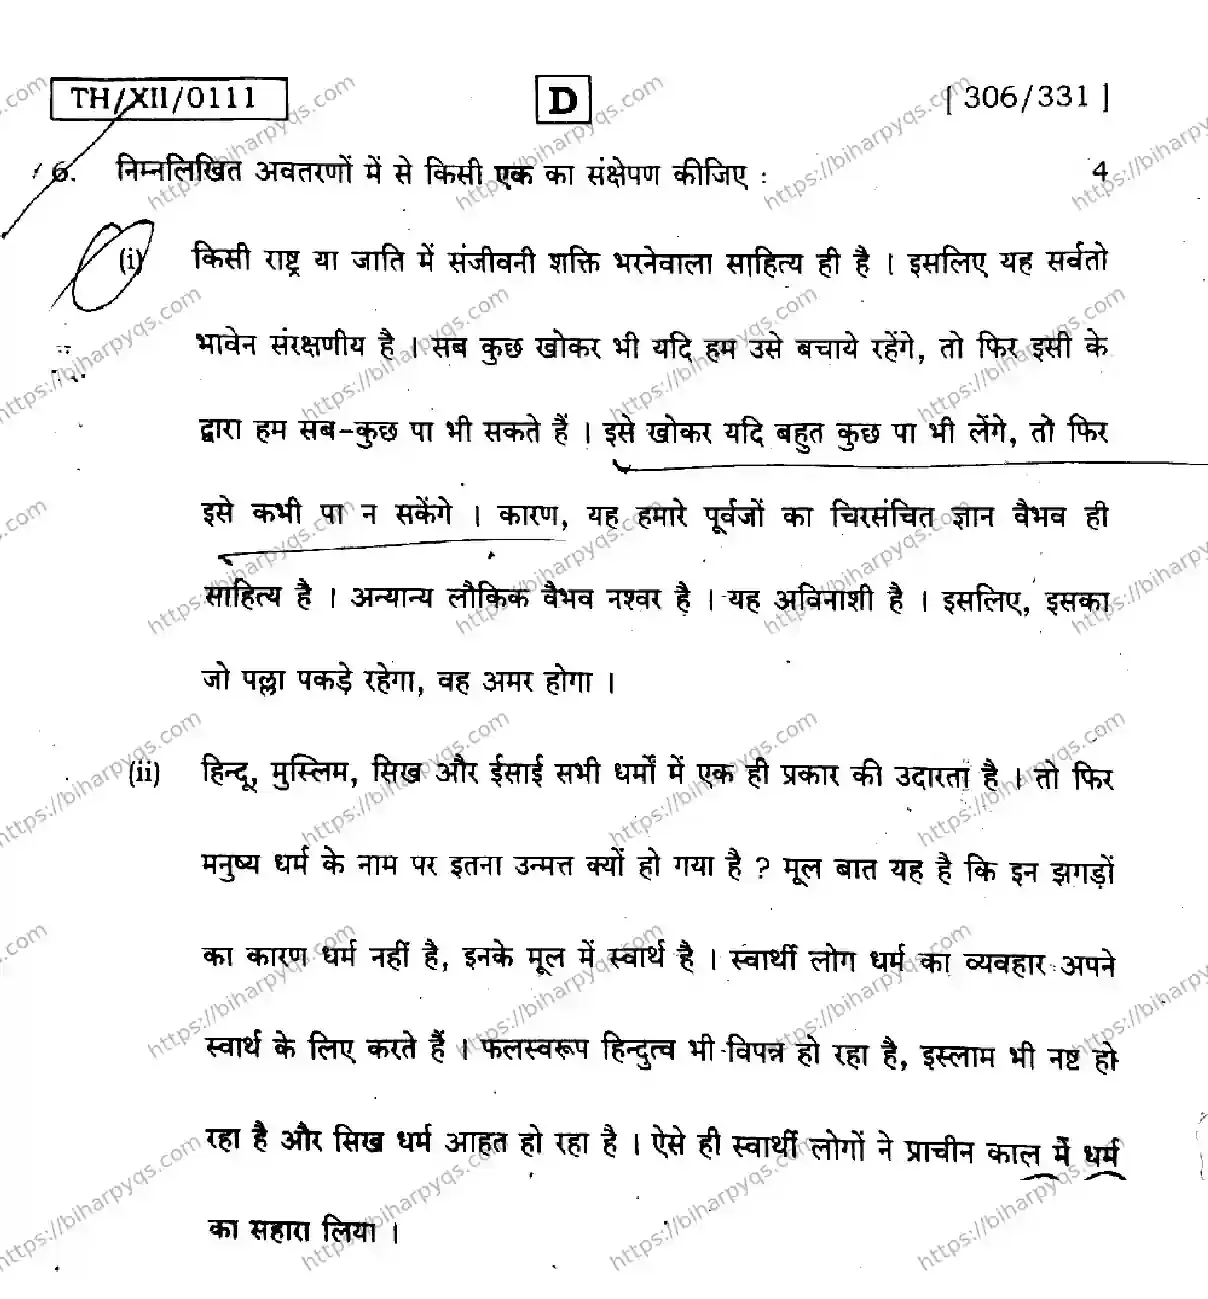 TH/XII/0111 D [ 306/331 ]
6. निम्नलिखित अवतरणों में से किसी एक का संक्षेपण कीजिए : 4
(i) किसी राष्ट्र या जाति में संजीवनी शक्ति भरनेवाला साहित्य ही है । इसलिए यह सर्वतो
भावेन संरक्षणीय है । सब कुछ खोकर भी यदि हम उसे बचाये रहेंगे, तो फिर इसी के
द्वारा हम सब-कुछ पा भी सकते हैं । इसे खोकर यदि बहुत कुछ पा भी लेंगे, तो फिर
इसे कभी पा न सकेंगे । कारण, यह हमारे पूर्वजों का चिरसंचित ज्ञान वैभव ही
साहित्य है । अन्यान्य लौकिक वैभव नश्वर है । यह अविनाशी है । इसलिए, इसका
जो पल्ला पकड़े रहेगा, वह अमर होगा ।
(ii) हिन्दू, मुस्लिम, सिख और ईसाई सभी धर्मों में एक ही प्रकार की उदारता है । तो फिर
मनुष्य धर्म के नाम पर इतना उन्मत्त क्यों हो गया है ? मूल बात यह है कि इन झगड़ों
का कारण धर्म नहीं है, इनके मूल में स्वार्थ है । स्वार्थी लोग धर्म का व्यवहार अपने
स्वार्थ के लिए करते हैं । फलस्वरूप हिन्दुत्व भी विपन्न हो रहा है, इस्लाम भी नष्ट हो
रहा है और सिख धर्म आहत हो रहा है । ऐसे ही स्वार्थी लोगों ने प्राचीन काल में धर्म
का सहारा लिया ।
https://biharpyqs.com